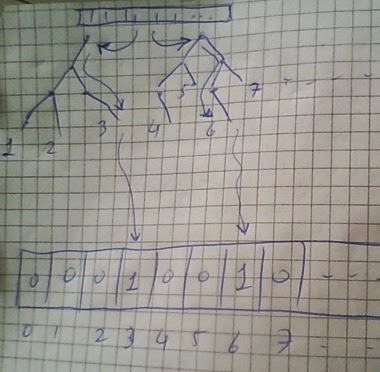 5 7
1 2 3 4 6
0 0 0 1 0 0 1 0
0 1 2 3 4 5 6 7